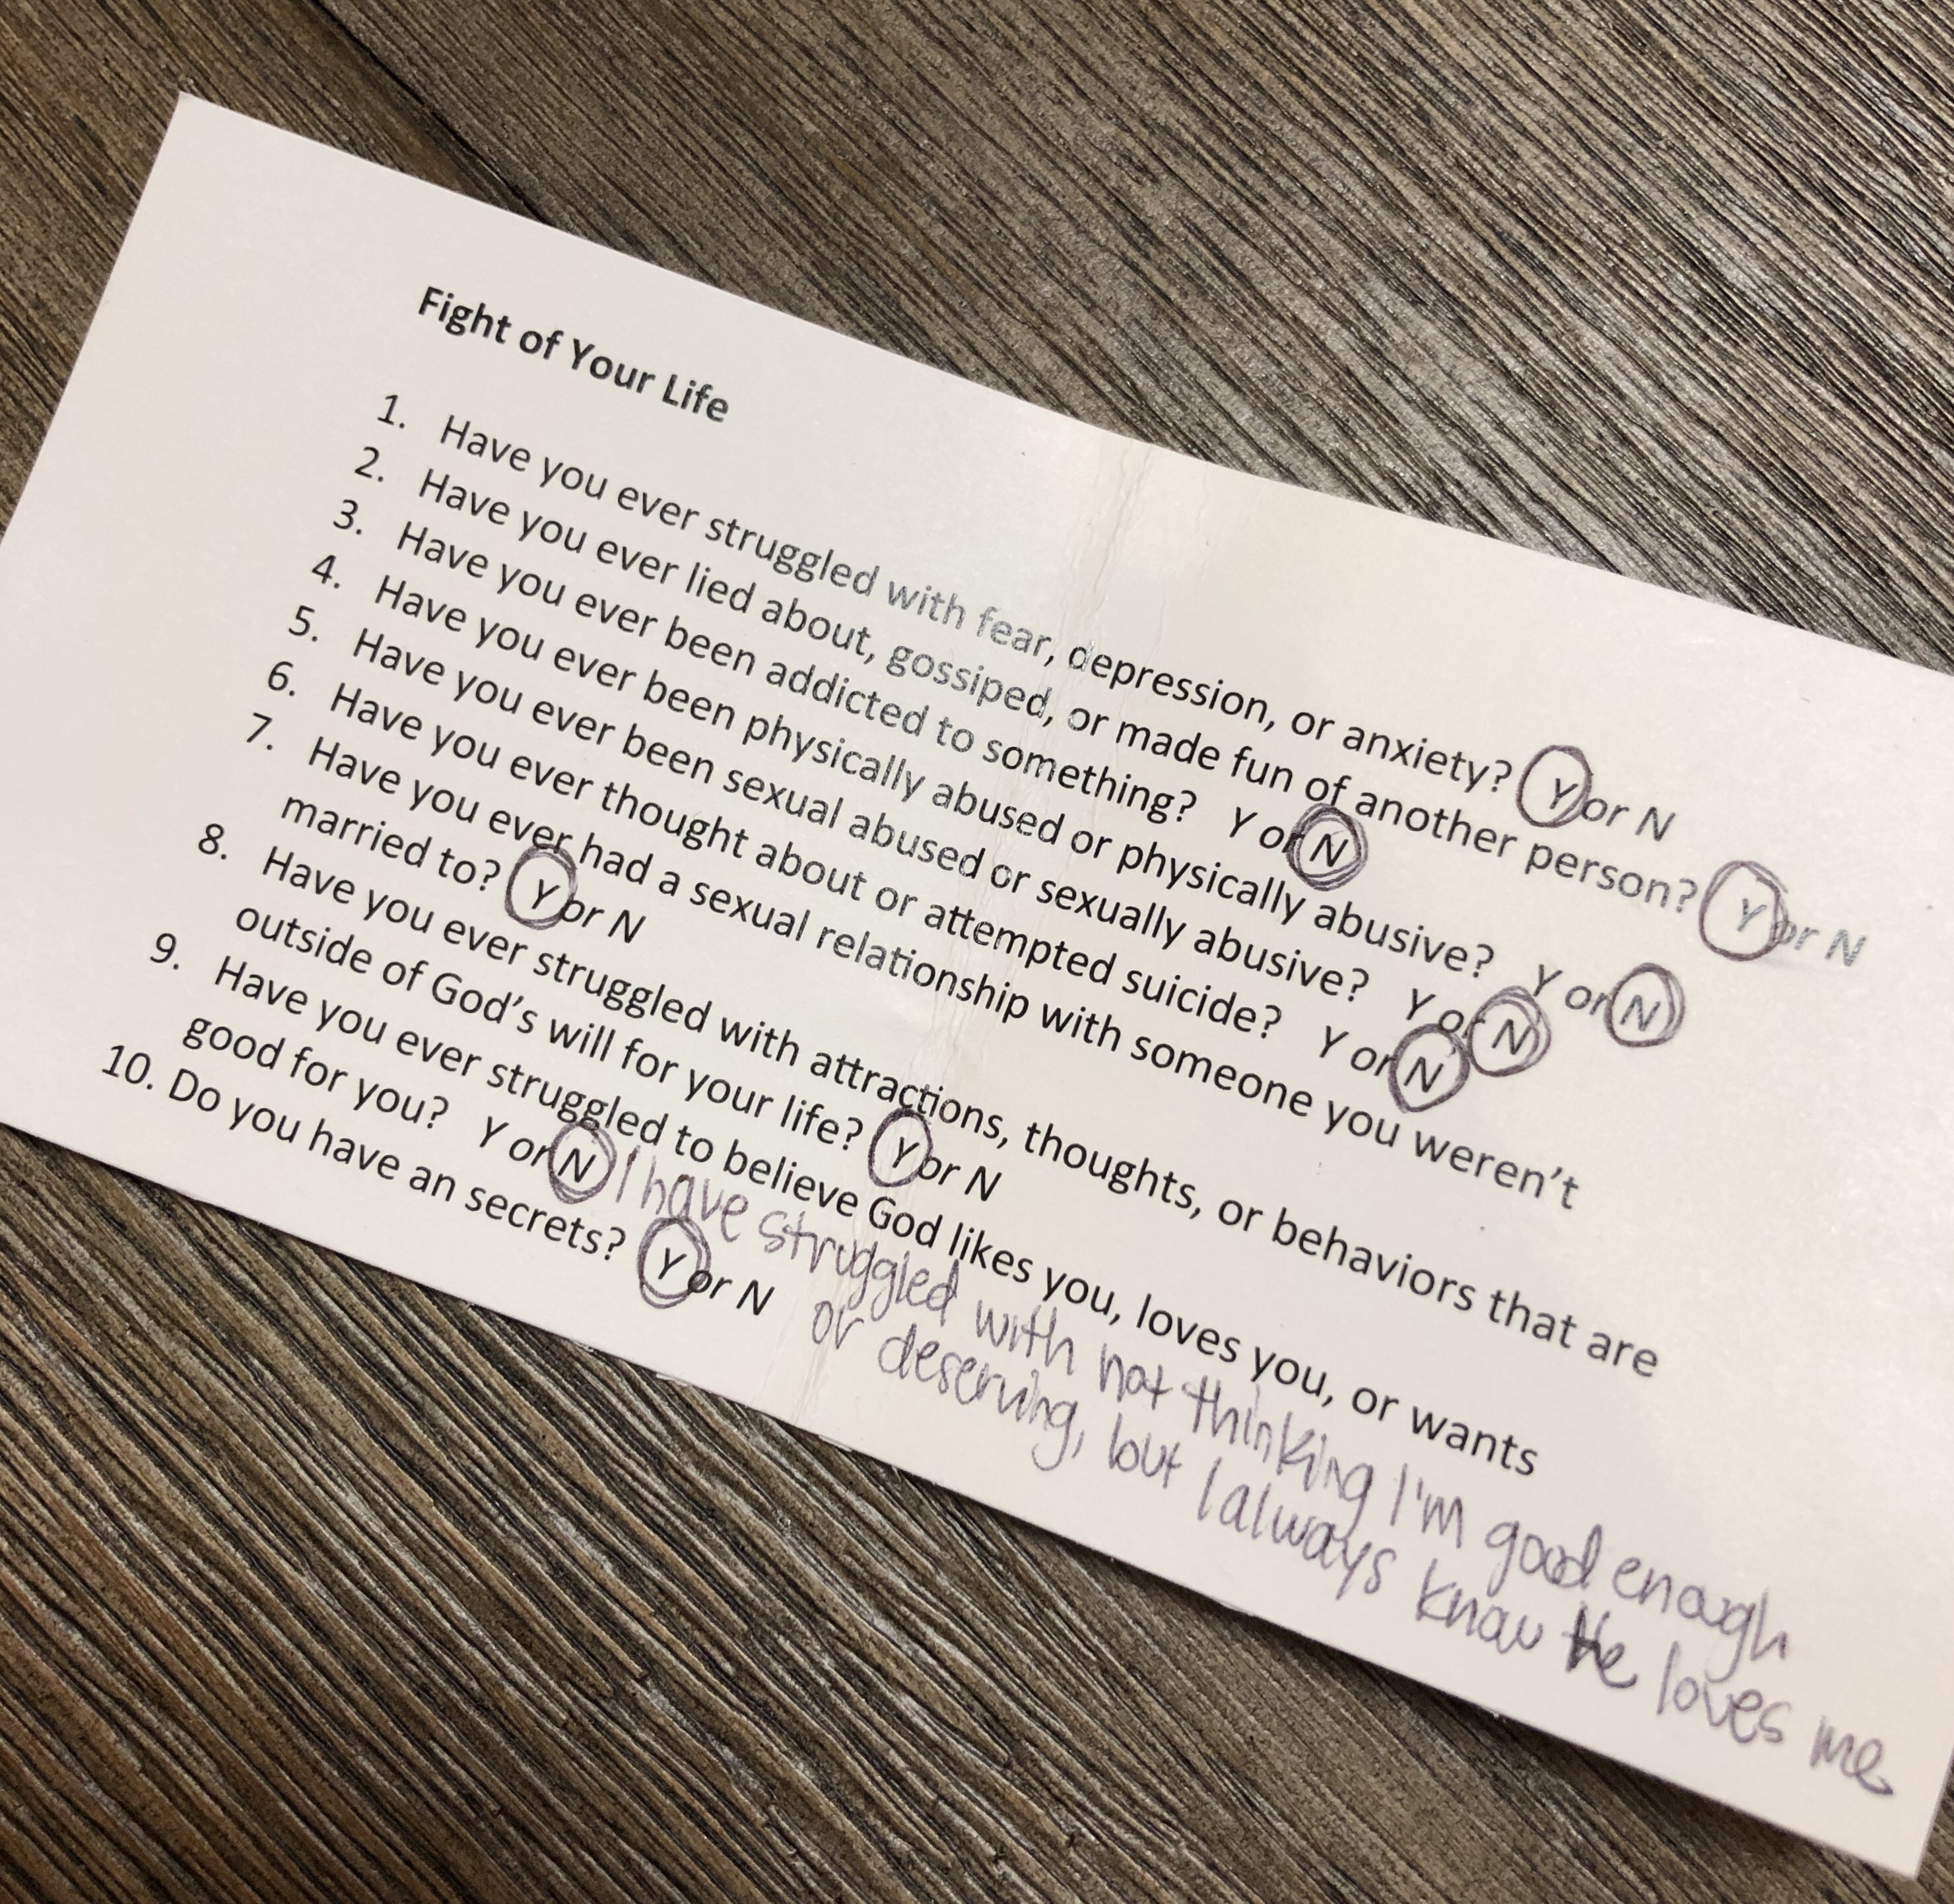 Fight of Your Life
1. Have you ever struggled with fear, depression, or anxiety? Y or N
2. Have you ever lied about, gossiped, or made fun of another person? Y or N
3. Have you ever been addicted to something? Y or N
4. Have you ever been physically abused or physically abusive? Y or N
5. Have you ever been sexual abused or sexually abusive? Y or N
6. Have you ever thought about or attempted suicide? Y or N
7. Have you ever had a sexual relationship with someone you weren't
married to? Y or N
8. Have you ever struggled with attractions, thoughts, or behaviors that are
outside of God's will for your life? Y or N
9. Have you ever struggled to believe God likes you, loves you, or wants
good for you? Y or N I have struggled with not thinking I'm good enough
10. Do you have an secrets? Y or N or deserving, but I always know He loves me